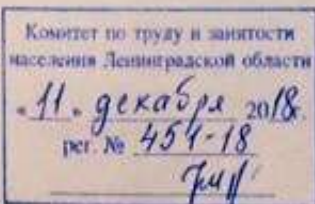 Комитет по труду и занятости
населения Ленинградской области
«11» декабря 2018г.
рег. № 451-18